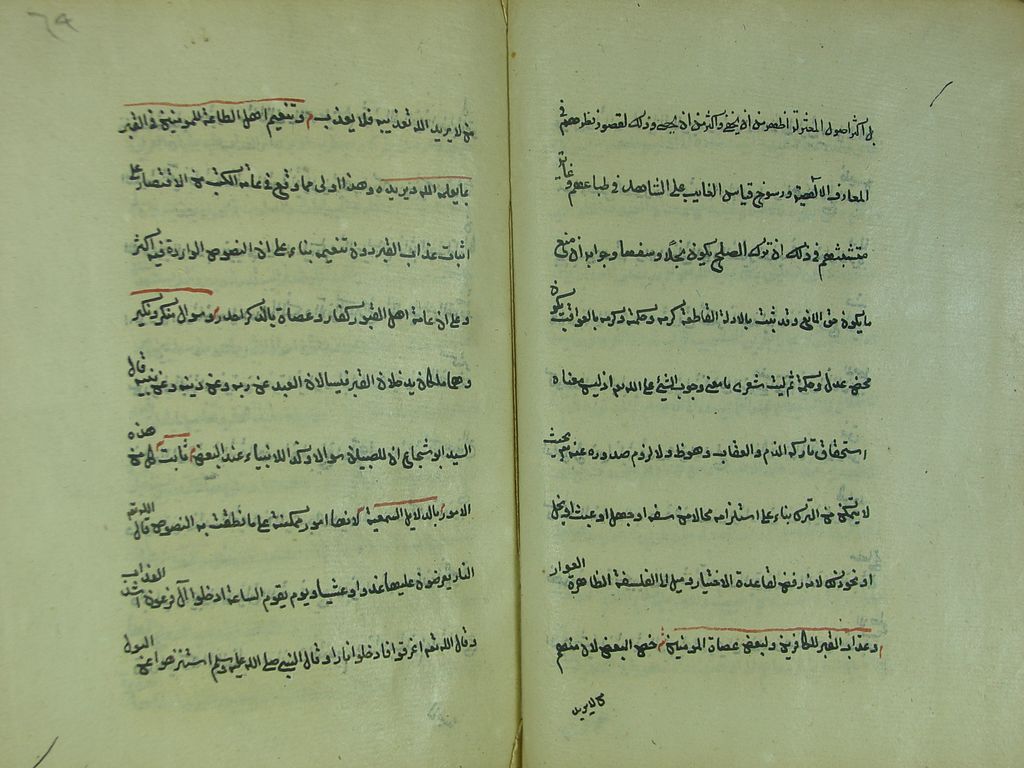 بل اكثر اصول المعتزلة اظهر من ان يخفى واكثر من ان يحصى وذلك لقصور نظرهم في
المعارف الالهية ورسوخ قياس الغايب على الشاهد في طباعهم وغاية
متشبثهم في ذلك ان ترك الاصلح يكون بخلا وسفها وجوابه ان منع
ما يكون حق المانع وقد ثبت بالادلة القاطعة كرمه وحكمته وكرمه بالعواقب يكون
محض عدل وحكمة ثم ليت شعري ما معنى وجوب الشيء على الله تعم اذ ليس معناه
استحقاق تاركه الذم والعقاب وهو ظ ولا لزوم صدوره عنه بحيث
لا يتمكن من الترك بناء على استلزامه محالا من سفه او جهل او عبث او بخل
او نحو ذلك لانه رفض لقاعدة الاختيار وميل الى الفلسفة الظاهرة العوار
وعذاب القبر للكافرين ولبعض عصاة المومنين خص البعض لان منهم
من لا يريد الله تعذيبه فلا يعذب م وتنعيم اهل الطاعة للمومنين في القبر
بما يعلمه الله ويريده وهذا اولى مما وقع في عامة الكتب من الاقتصار على
اثبات عذاب القبر دون تنعيمه بناء على ان النصوص الواردة فيه اكثر
وعلى ان عامة اهل القبور كفار وعصاة بالذكر اجدر وسوال منكر ونكير
وهما ملكان يدخلان القبر فيسالان العبد عن ربه وعن دينه وعن نبيه قال
السيد ابو شجاع ان للصبيان سوالا وكذا للانبياء عند البعض ثابت كل من هذه
الامور بالدلايل السمعية لانها امور ممكنة على ما نطقت به النصوص قال الله تعم
النار يعرضون عليها غدوا وعشيا ويوم يقوم الساعة ادخلوا آل فرعون اشد العذاب
وقال الله تعم اغرقوا فادخلوا نارا وقال النبي صلى الله عليه وسلم استنزهوا عن البول